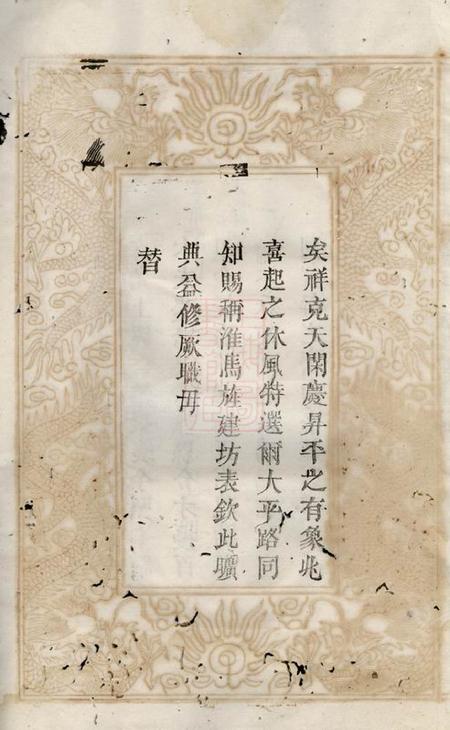 矣祥克天閑慶昇平之有象兆
喜起之休風特選爾太平路同
知賜稱淮馬旌建坊表欽此曠
典益修厥職毋
替